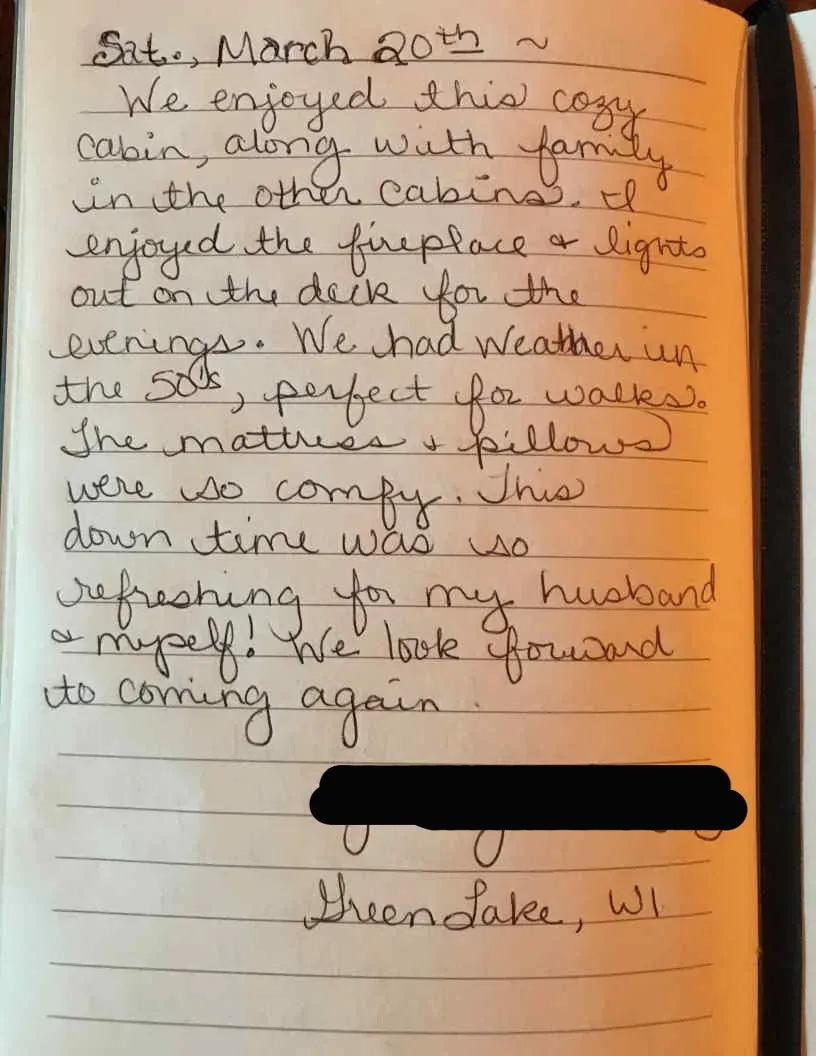 Sat., March 20th ~
We enjoyed this cozy
cabin, along with family
in the other cabins. I
enjoyed the fireplace & lights
out on the deck for the
evenings. We had weather in
the 50's, perfect for walks.
The mattress & pillows
were so comfy. This
down time was so
refreshing for my husband
& myself! We look forward
to coming again.
Green Lake, WI